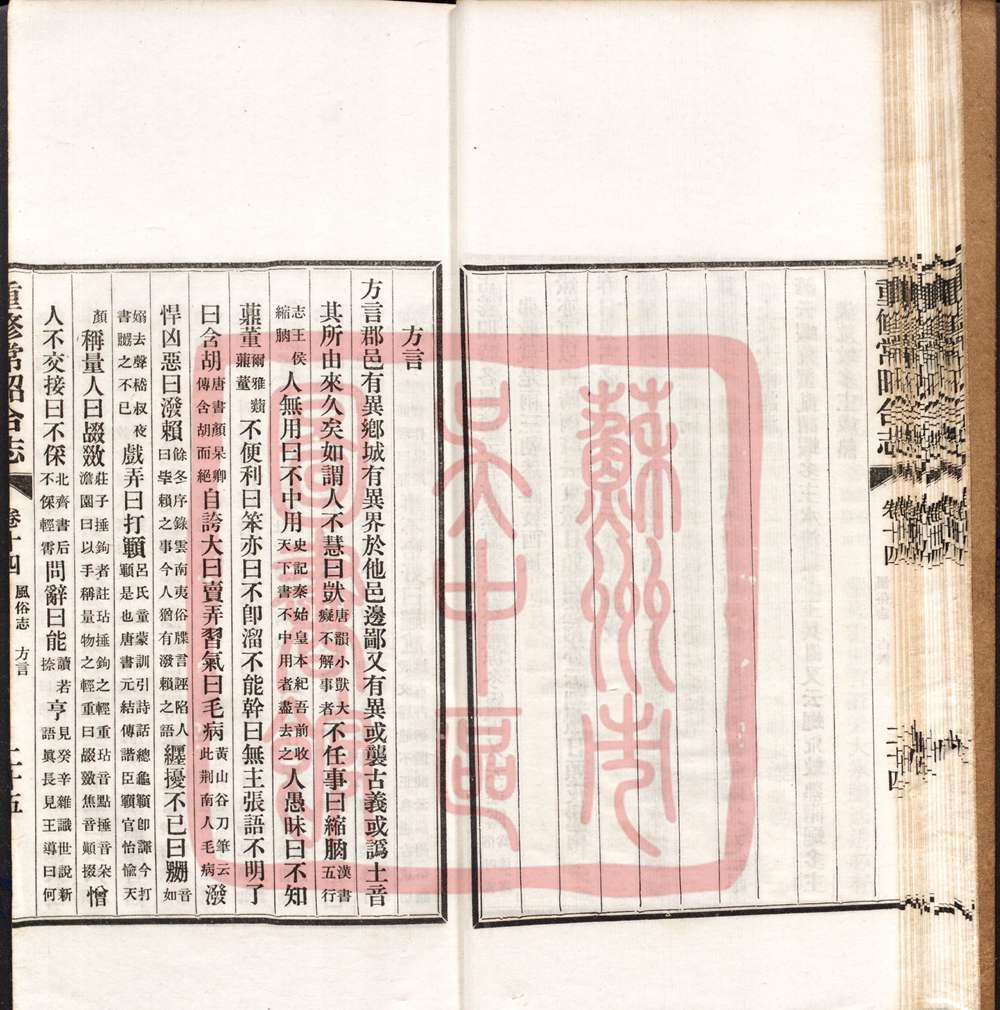 方言
方言郡邑有異鄉城有異界於他邑邊鄙又有異或襲古義或譌土音
其所由來久矣如謂人不慧曰獃唐韻小獃大癡不解事者不任事曰縮朒漢書五行
志王侯縮朒人無用曰不中用史記秦始皇本紀吾前收天下書不中用者盡去之人愚昧曰不知
薡董爾雅蘱薡蕫不便利曰笨亦曰不卽溜不能幹曰無主張語不明了
曰含胡唐書顏杲卿傳含胡而絕自誇大曰賣弄習氣曰毛病黃山谷刀筆云此荆南人毛病潑
悍凶惡曰潑賴餘冬序錄雲南夷俗牒言誣陷人曰㘸賴之事今人猶有潑賴之語纒擾不已曰嬲音如
嫋去聲嵇叔夜書嬲之不已戲弄曰打顐呂氏童蒙訓引詩話總龜顐卽諢今打顐是也唐書元結傳諧臣顐官怡愉天
顏稱量人曰敠莊子捶鉤者註玷捶鉤之輕重玷音點捶音朵澹園曰以手稱量物之輕重曰敠焦音顚掇憎
人不交接曰不倸北齊書后不倸輕霄問辭曰能讀若捺亨見癸辛雜識世說新語眞長見王導曰何
重修常昭合志
卷十四
風俗志 方言
二十五
重修常昭合志
卷十四
二十四
蘇州市
吳中區
圖書館